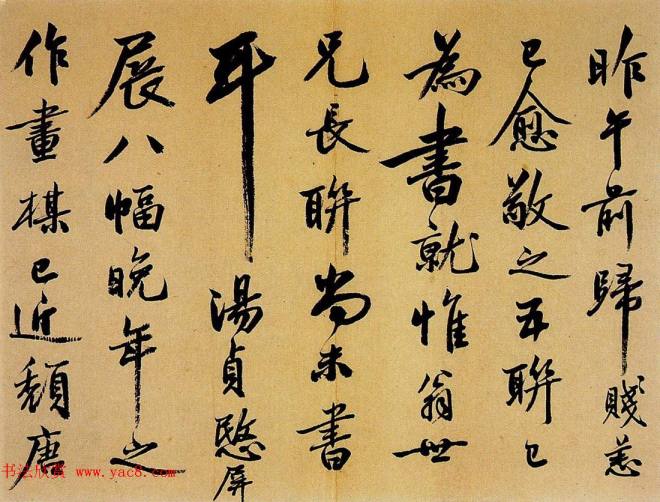 昨午前歸賤恙
已愈敬之五聯已
為書就惟翁世
兄長聯尚未書
耳湯貞愍屏
展八幅晚年之
作畫楳已近頽唐
书法欣赏 www.yac8.com